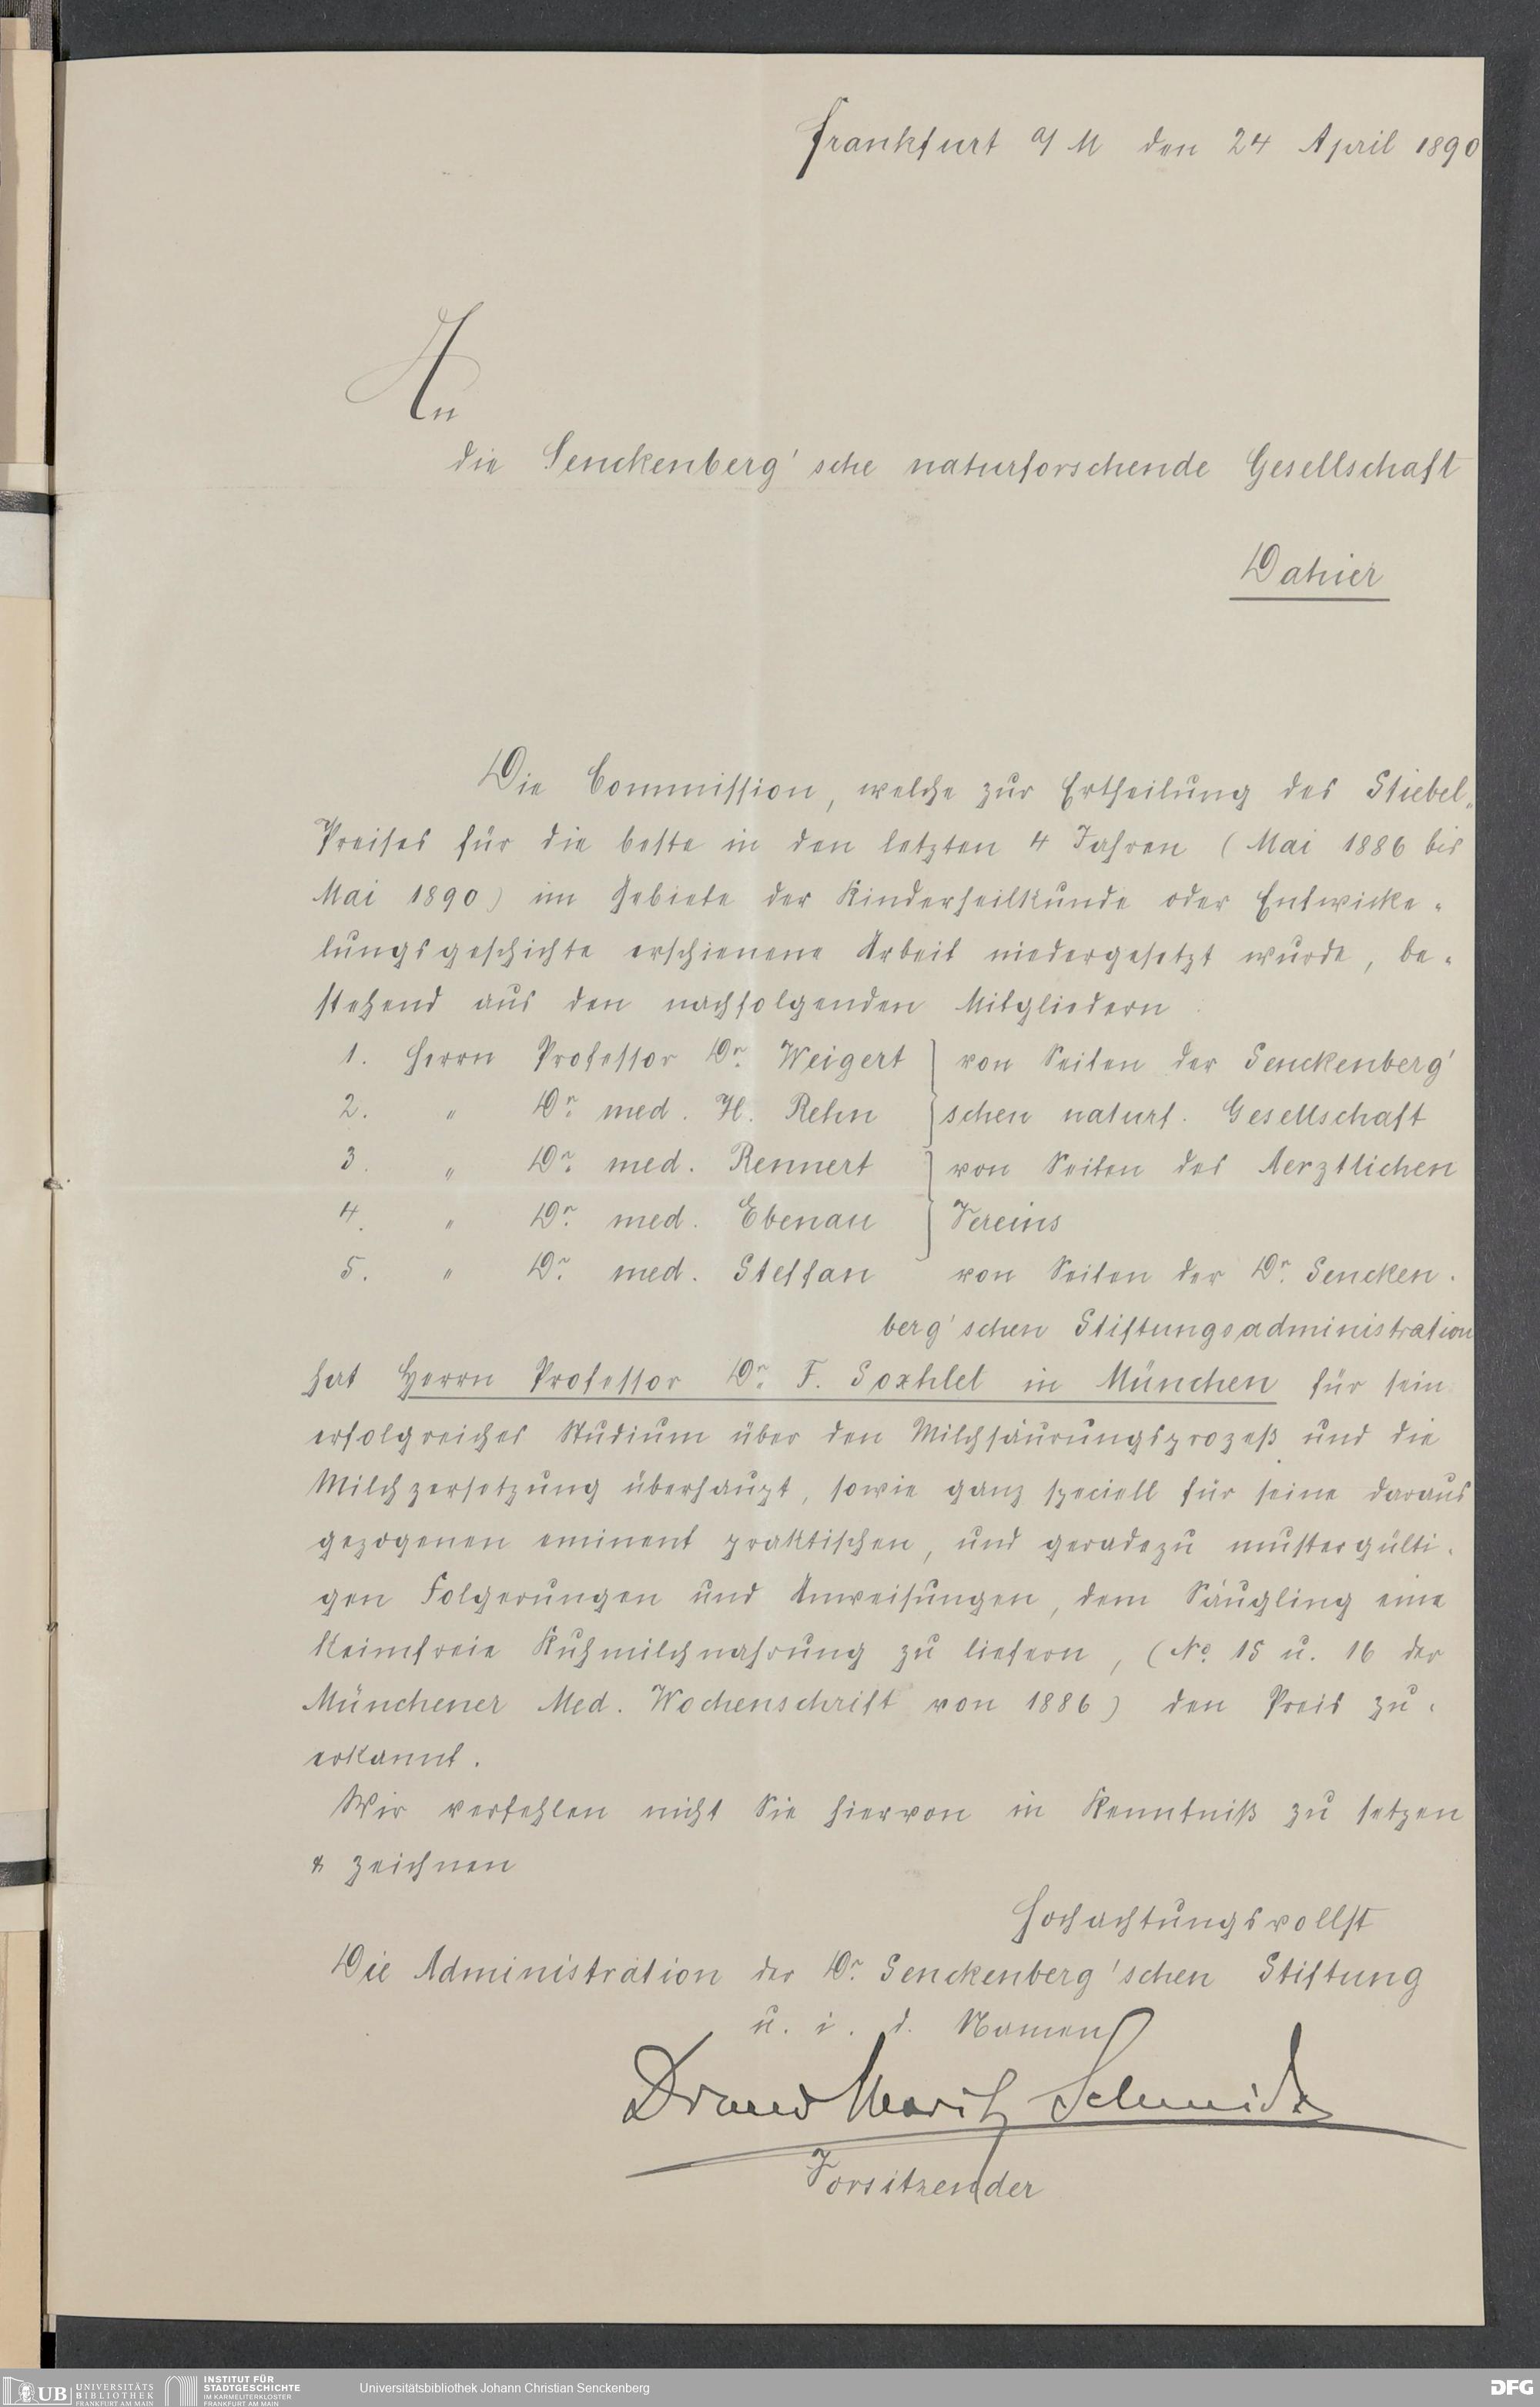 Frankfurt a/M den 24 April 1890
An
die Senckenberg'sche naturforschende Gesellschaft
Dahier
Die Commission, welche zur Ertheilung des Stiebel-
Preises für die beste in den letzten 4 Jahren (Mai 1886 bis
Mai 1890) im Gebiete der Kinderheilkunde oder Entwicke-
lungsgeschichte erschienene Arbeit niedergesetzt wurde, be-
stehend aus den nachfolgenden Mitgliedern
1. Herrn Professor Dr. Weigert } von Seiten der Senckenberg'
2. " Dr. med. H. Rehn } schen naturf. Gesellschaft
3. " Dr. med. Rennert } von Seiten des Aerztlichen
4. " Dr. med. Ebenau } Vereins
5. " Dr. med. Steffan von Seiten der Dr. Sencken-
berg'schen Stiftungsadministration
hat Herrn Professor Dr. F. Soxhlet in München für sein
erfolgreiches Studium über den Milchsäurungsprozeß und die
Milchzersetzung überhaupt, sowie ganz speciell für seine daraus
gezogenen eminent praktischen, und geradezu mustergülti-
gen Folgerungen und Anweisungen, dem Säugling eine
keimfreie Kuhmilchnahrung zu liefern, (No. 15 u. 16 der
Münchener Med. Wochenschrift von 1886) den Preis zu-
erkannt.
Wir verfehlen nicht Sie hiervon in Kenntniß zu setzen
& zeichnen
Hochachtungsvollst
Die Administration der Dr. Senckenberg'schen Stiftung
u. i. d. Namen
Dr med Moritz Schmidt
Vorsitzender
UB UNIVERSITÄTS
BIBLIOTHEK
FRANKFURT AM MAIN
INSTITUT FÜR
STADTGESCHICHTE
IM KARMELITERKLOSTER
FRANKFURT AM MAIN
Universitätsbibliothek Johann Christian Senckenberg
DFG